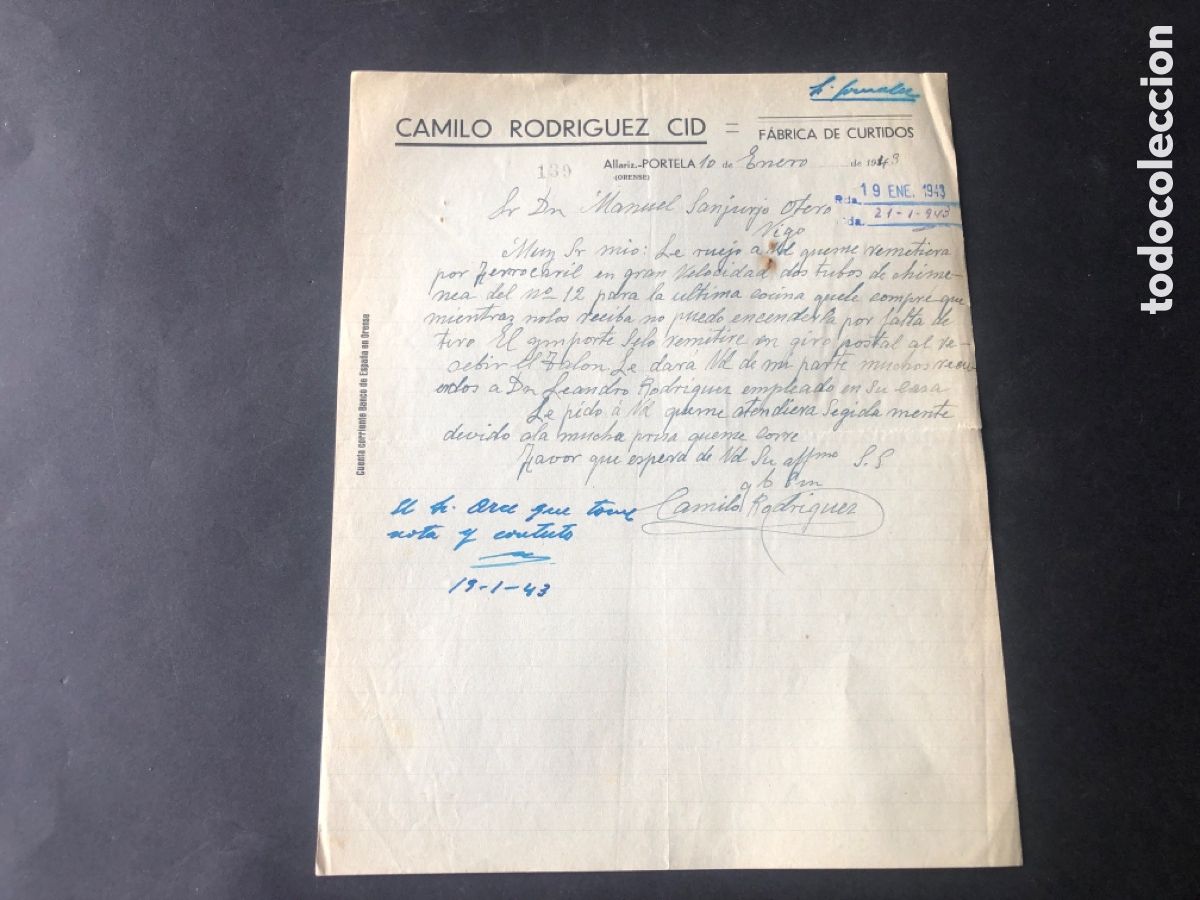 CAMILO RODRIGUEZ CID = FÁBRICA DE CURTIDOS
Allariz.-PORTELA 10 de Enero de 1943
(ORENSE)
139
Rda. 19 ENE. 1943
da. 21-1-943
Sr Dn Manuel Sanjurjo Otero
Vigo
Muy Sr mio: Le ruejo a Vd queme remetiera
por Ferrocaril en gran Velocidad dos tubos de chime-
nea del nº 12 para la ultima cocina quele compre que
mientraz nolos reciba no puedo encenderla por falta de
tiro El ymporte Selo remitire en giro postal al re-
sebir el Talon Le dará Vd de mi parte muchos recu-
erdos a Dn Leandro Rodriguez empleado en Su casa
Le pido á Vd queme atendiera Segida mente
devido ala mucha prisa queme corre
Favor que espera de Vd Su affmo S. S
q b s m
Camilo Rodriguez
Sr. Orce que tome
nota y
19-1-43
Cuenta corriente Banco de España en Orense
todocoleccion